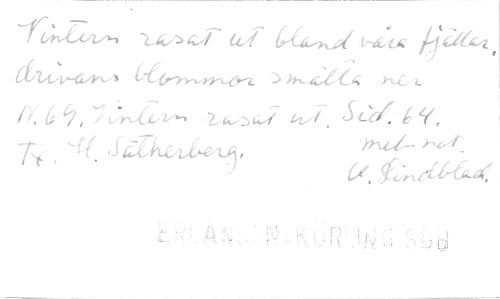 Vintern rasat ut bland våra fjällar,
drivans blommor smälta ner
N. 69. Vintern rasat ut. Sid. 64.
Tx. H. Sätherberg. mel-not.
O. Lindblad.
ERLANSON-KÖRLING SGB